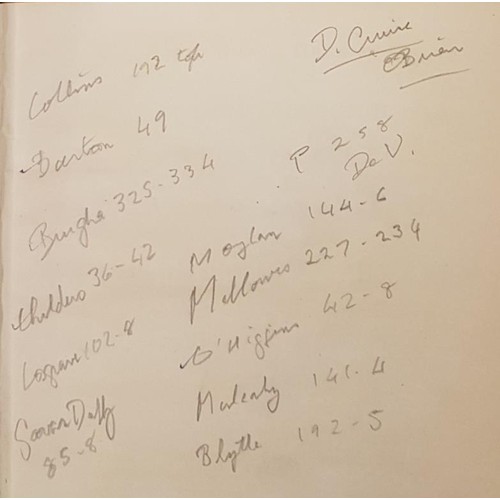 D. Cruise
O'Brien
Collins 192 top
Barton 49
Brugha 325-334
Childers 36-42
Cosgrave 102-8
Gavan Duffy
85-8
P 258
De V.
Moylan 144-6
Mellows 227-234
O'Higgins 42-8
Mulcahy 141-4
Blythe 192-5